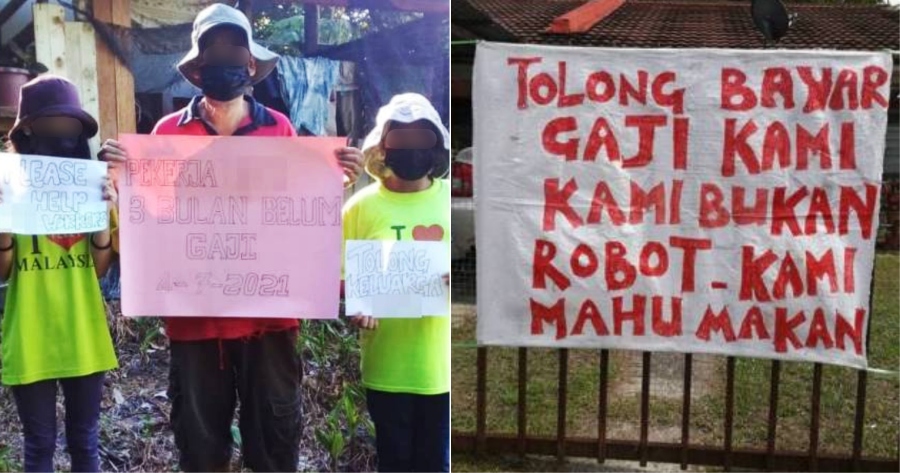 PLEASE
HELP
WORKER
I
MALAYSIA
PEKERJA
3 BULAN BELUM
GAJI
4-7-2021
I
TOLONG
KELUARGA
TOLONG BAYAR
GAJI KAMI
KAMI BUKAN
ROBOT - KAMI
MAHU MAKAN